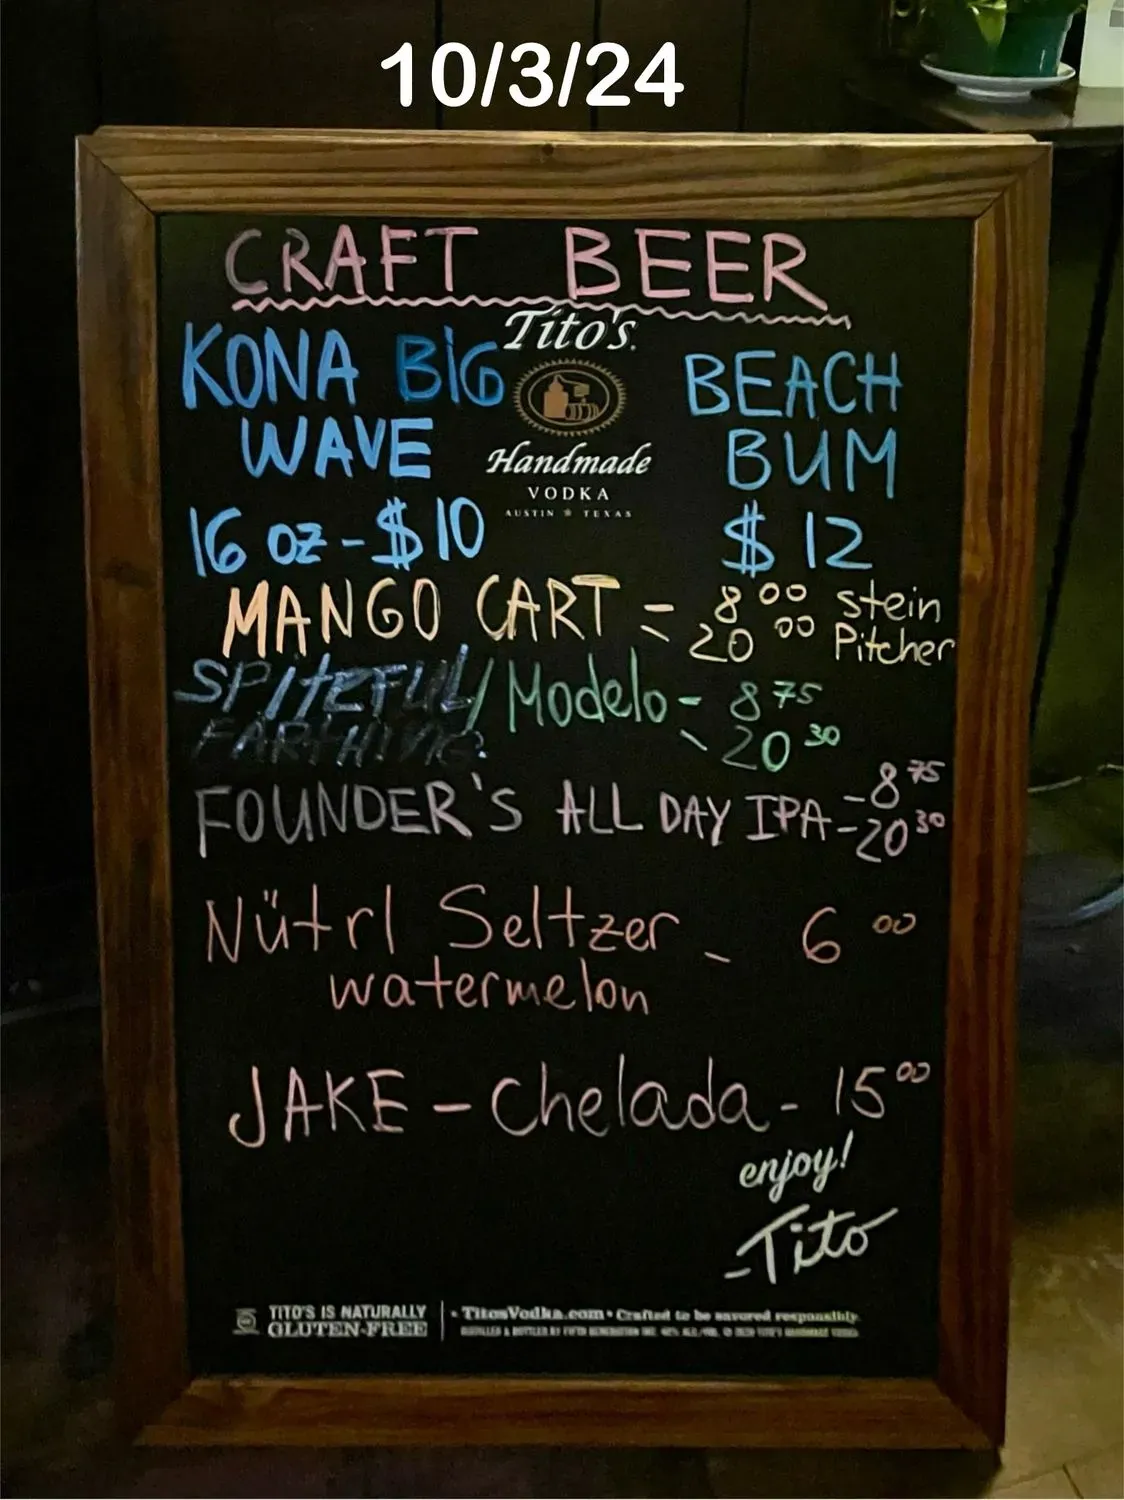 10/3/24
CRAFT BEER
Tito's
KONA BIG
WAVE
16 oz - $10
Handmade
VODKA
AUSTIN * TEXAS
BEACH
BUM
$12
MANGO CART = 8 00 stein
20 00 Pitcher
SPITEFUL / Modelo - 8 75
- 20 30
FOUNDER'S ALL DAY IPA - 8 75
- 20 30
Nütrl Seltzer - 6 00
watermelon
JAKE - Chelada - 15 00
enjoy!
-Tito
TITO'S IS NATURALLY
GLUTEN-FREE
• TitosVodka.com • Crafted to be savored responsibly.